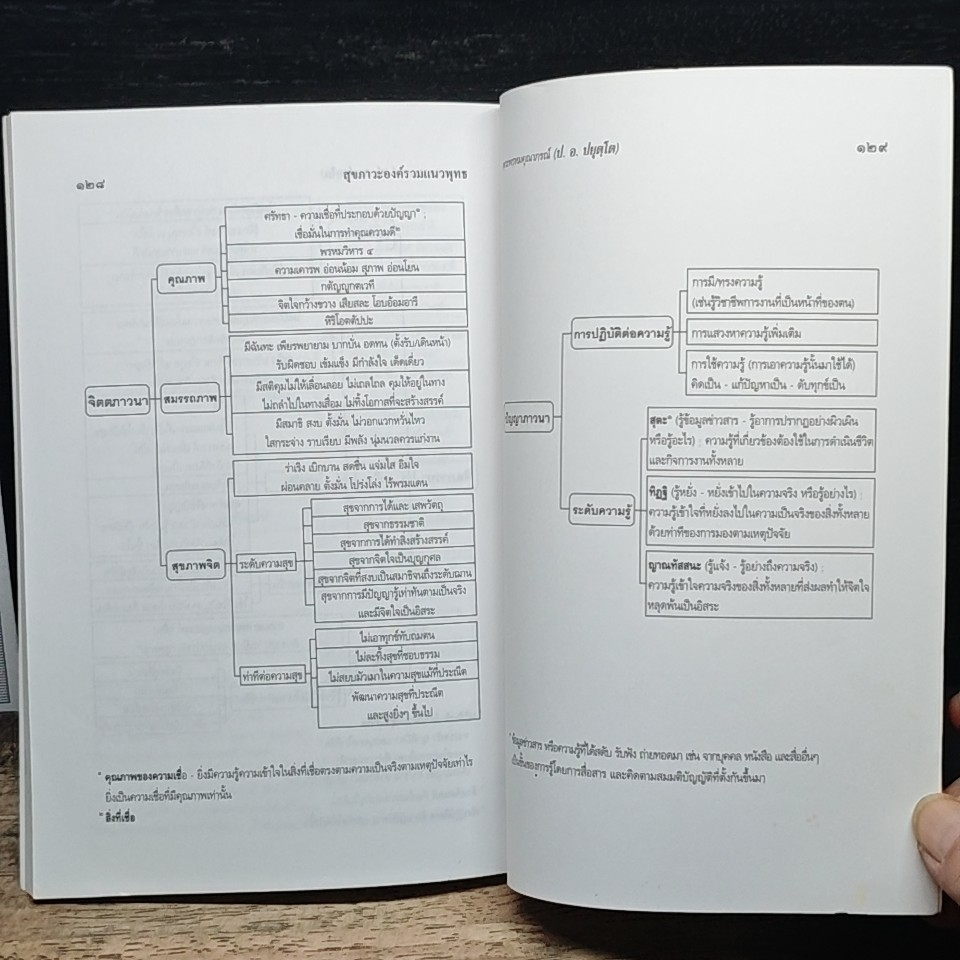 ๑๒๘
สุขภาวะองค์รวมแนวพุทธ
จิตตภาวนา
คุณภาพ
ศรัทธา - ความเชื่อที่ประกอบด้วยปัญญา* ;
เชื่อมั่นในการทำคุณความดี**
พรหมวิหาร ๔
ความเคารพ อ่อนน้อม สุภาพ อ่อนโยน
กตัญญูกตเวที
จิตใจกว้างขวาง เสียสละ โอบอ้อมอารี
หิริโอตตัปปะ
สมรรถภาพ
มีฉันทะ เพียรพยายาม บากบั่น อดทน (ตั้งรับ/เดินหน้า)
รับผิดชอบ เข้มแข็ง มีกำลังใจ เด็ดเดี่ยว
มีสติคุมไม่ให้เลื่อนลอย ไม่เถลไถล คุมให้อยู่ในทาง
ไม่ถลำไปในทางเสื่อม ไม่ทิ้งโอกาสที่จะสร้างสรรค์
มีสมาธิ สงบ ตั้งมั่น ไม่วอกแวกหวั่นไหว
ใสกระจ่าง ราบเรียบ มีพลัง นุ่มนวลควรแก่งาน
สุขภาพจิต
ร่าเริง เบิกบาน สดชื่น แจ่มใส อิ่มใจ
ผ่อนคลาย ตั้งมั่น โปร่งโล่ง ไร้พรมแดน
ระดับความสุข
สุขจากการได้และ เสพวัตถุ
สุขจากธรรมชาติ
สุขจากการได้ทำสิ่งสร้างสรรค์
สุขจากจิตใจเป็นบุญกุศล
สุขจากจิตที่สงบเป็นสมาธิจนถึงระดับฌาน
สุขจากการมีปัญญารู้เท่าทันตามเป็นจริง
และมีจิตใจเป็นอิสระ
ท่าทีต่อความสุข
ไม่เอาทุกข์ทับถมตน
ไม่ละทิ้งสุขที่ชอบธรรม
ไม่สยบมัวเมาในความสุขแม้ที่ประณีต
พัฒนาความสุขที่ประณีต
และสูงยิ่งๆ ขึ้นไป
* คุณภาพของความเชื่อ - ยิ่งมีความรู้ความเข้าใจในสิ่งที่เชื่อตรงตามความเป็นจริงตามเหตุปัจจัยเท่าไร
ยิ่งเป็นความเชื่อที่มีคุณภาพเท่านั้น
** สิ่งที่เชื่อ
พระพรหมคุณาภรณ์ (ป. อ. ปยุตฺโต)
๑๒๙
ปัญญาภาวนา
การปฏิบัติต่อความรู้
การมี/ทรงความรู้
(เช่นรู้วิชาชีพการงานที่เป็นหน้าที่ของตน)
การแสวงหาความรู้เพิ่มเติม
การใช้ความรู้ (การเอาความรู้นั้นมาใช้ได้)
คิดเป็น - แก้ปัญหาเป็น - ดับทุกข์เป็น
ระดับความรู้
สุตะ* (รู้ข้อมูลข่าวสาร - รู้อาการปรากฏอย่างผิวเผิน
หรือรู้อะไร) ; ความรู้ที่เกี่ยวข้องต้องใช้ในการดำเนินชีวิต
และกิจการงานทั้งหลาย
ทิฏฐิ (รู้หยั่ง - หยั่งเข้าไปในความจริง หรือรู้อย่างไร) ;
ความรู้เข้าใจที่หยั่งลงไปในความเป็นจริงของสิ่งทั้งหลาย
ด้วยท่าทีของการมองตามเหตุปัจจัย
ญาณทัสสนะ (รู้แจ้ง - รู้อย่างถึงความจริง) ;
ความรู้เข้าใจความจริงของสิ่งทั้งหลายที่ส่งผลทำให้จิตใจ
หลุดพ้นเป็นอิสระ
* ข้อมูลข่าวสาร หรือความรู้ที่ได้สดับ รับฟัง ถ่ายทอดมา เช่น จากบุคคล หนังสือ และสื่ออื่นๆ
เป็นขั้นของการรู้โดยการสื่อสาร และคิดตามสมมติบัญญัติที่ตั้งกันขึ้นมา